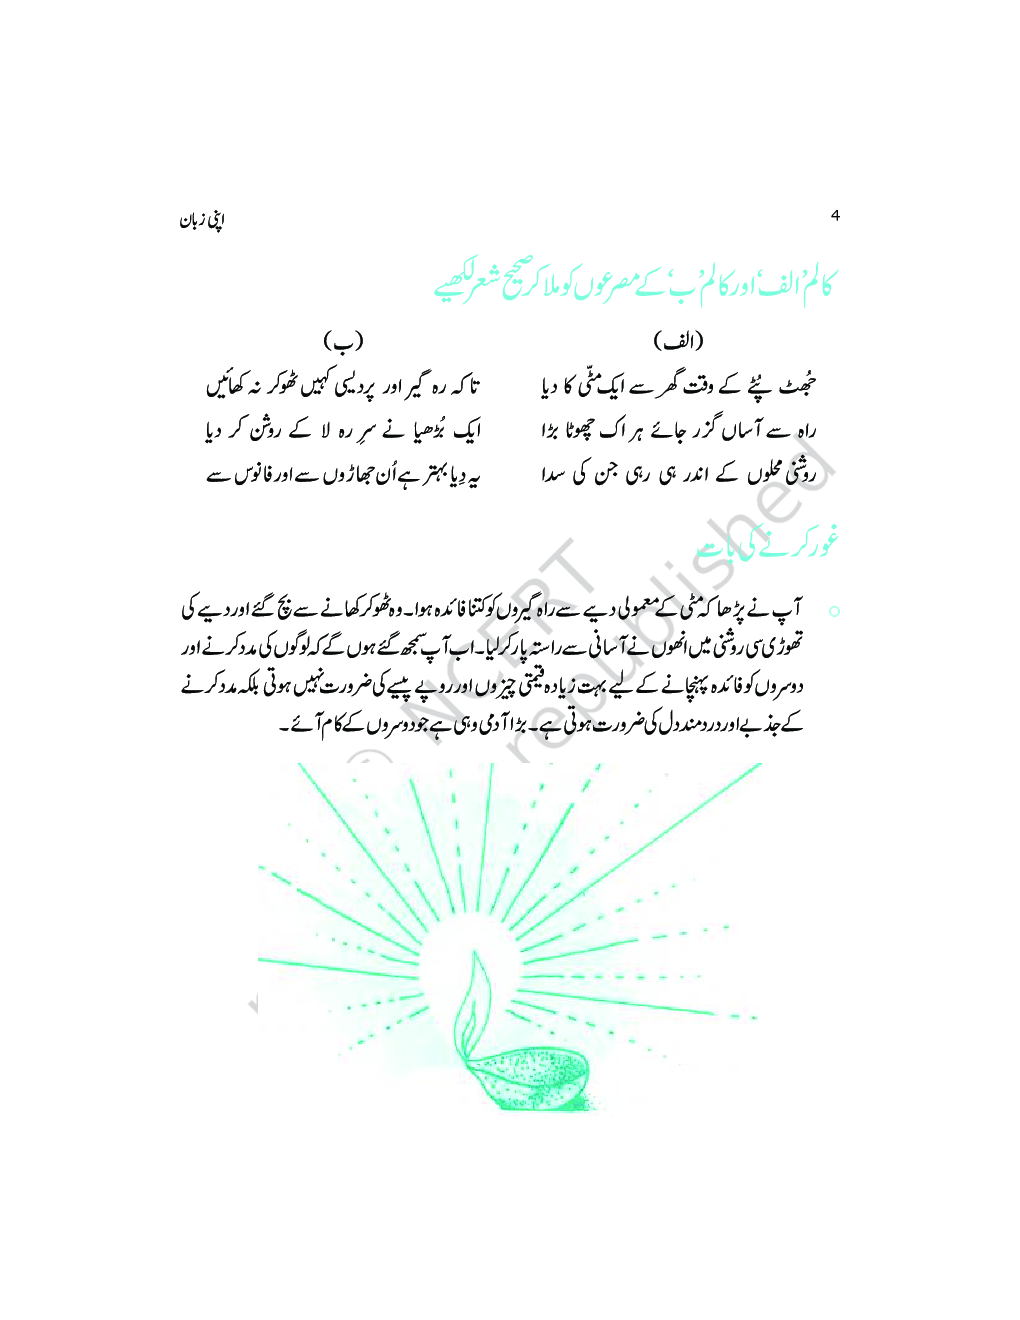 4
اپنی زبان
کالم ’الف‘ اور کالم ’ب‘ کے مصرعوں کو ملا کر صحیح شعر لکھیے
(الف) (ب)
جُھٹ پُٹے کے وقت گھر سے ایک مٹّی کا دیا تا کہ رہ گیر اور پردیسی کہیں ٹھوکر نہ کھائیں
راہ سے آساں گزر جائے ہر اک چھوٹا بڑا ایک بُڑھیا نے سرِ رہ لا کے روشن کر دیا
روشنی محلوں کے اندر ہی رہی جن کی سدا یہ دِیا بہتر ہے اُن جھاڑوں سے اور فانوس سے
غور کرنے کی بات
آپ نے پڑھا کہ مٹی کے معمولی دیے سے راہ گیروں کو کتنا فائدہ ہوا۔ وہ ٹھوکر کھانے سے بچ گئے اور دیے کی
تھوڑی سی روشنی میں انھوں نے آسانی سے راستہ پار کر لیا۔ اب آپ سمجھ گئے ہوں گے کہ لوگوں کی مدد کرنے اور
دوسروں کو فائدہ پہنچانے کے لیے بہت زیادہ قیمتی چیزوں اور روپے پیسے کی ضرورت نہیں ہوتی بلکہ مدد کرنے
کے جذبے اور درد مند دل کی ضرورت ہوتی ہے۔ بڑا آدمی وہی ہے جو دوسروں کے کام آئے۔
© NCERT
republished